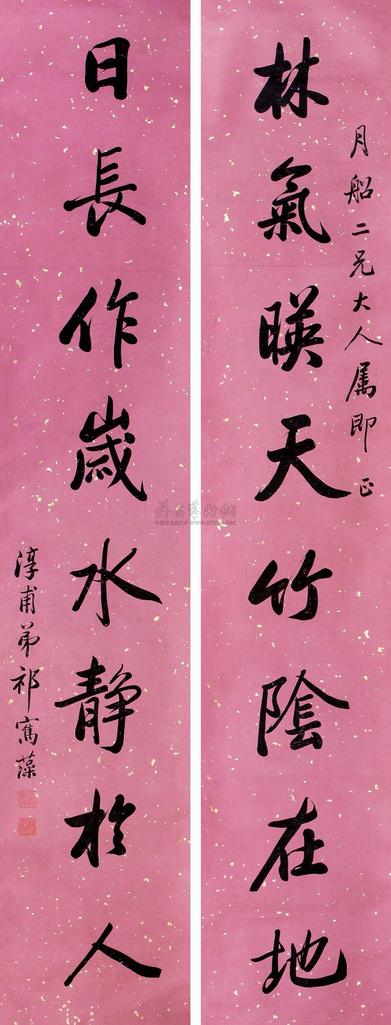 月船二兄大人属即正
林氣暎天竹陰在地
日長作歲水静於人
淳甫弟祁寯藻